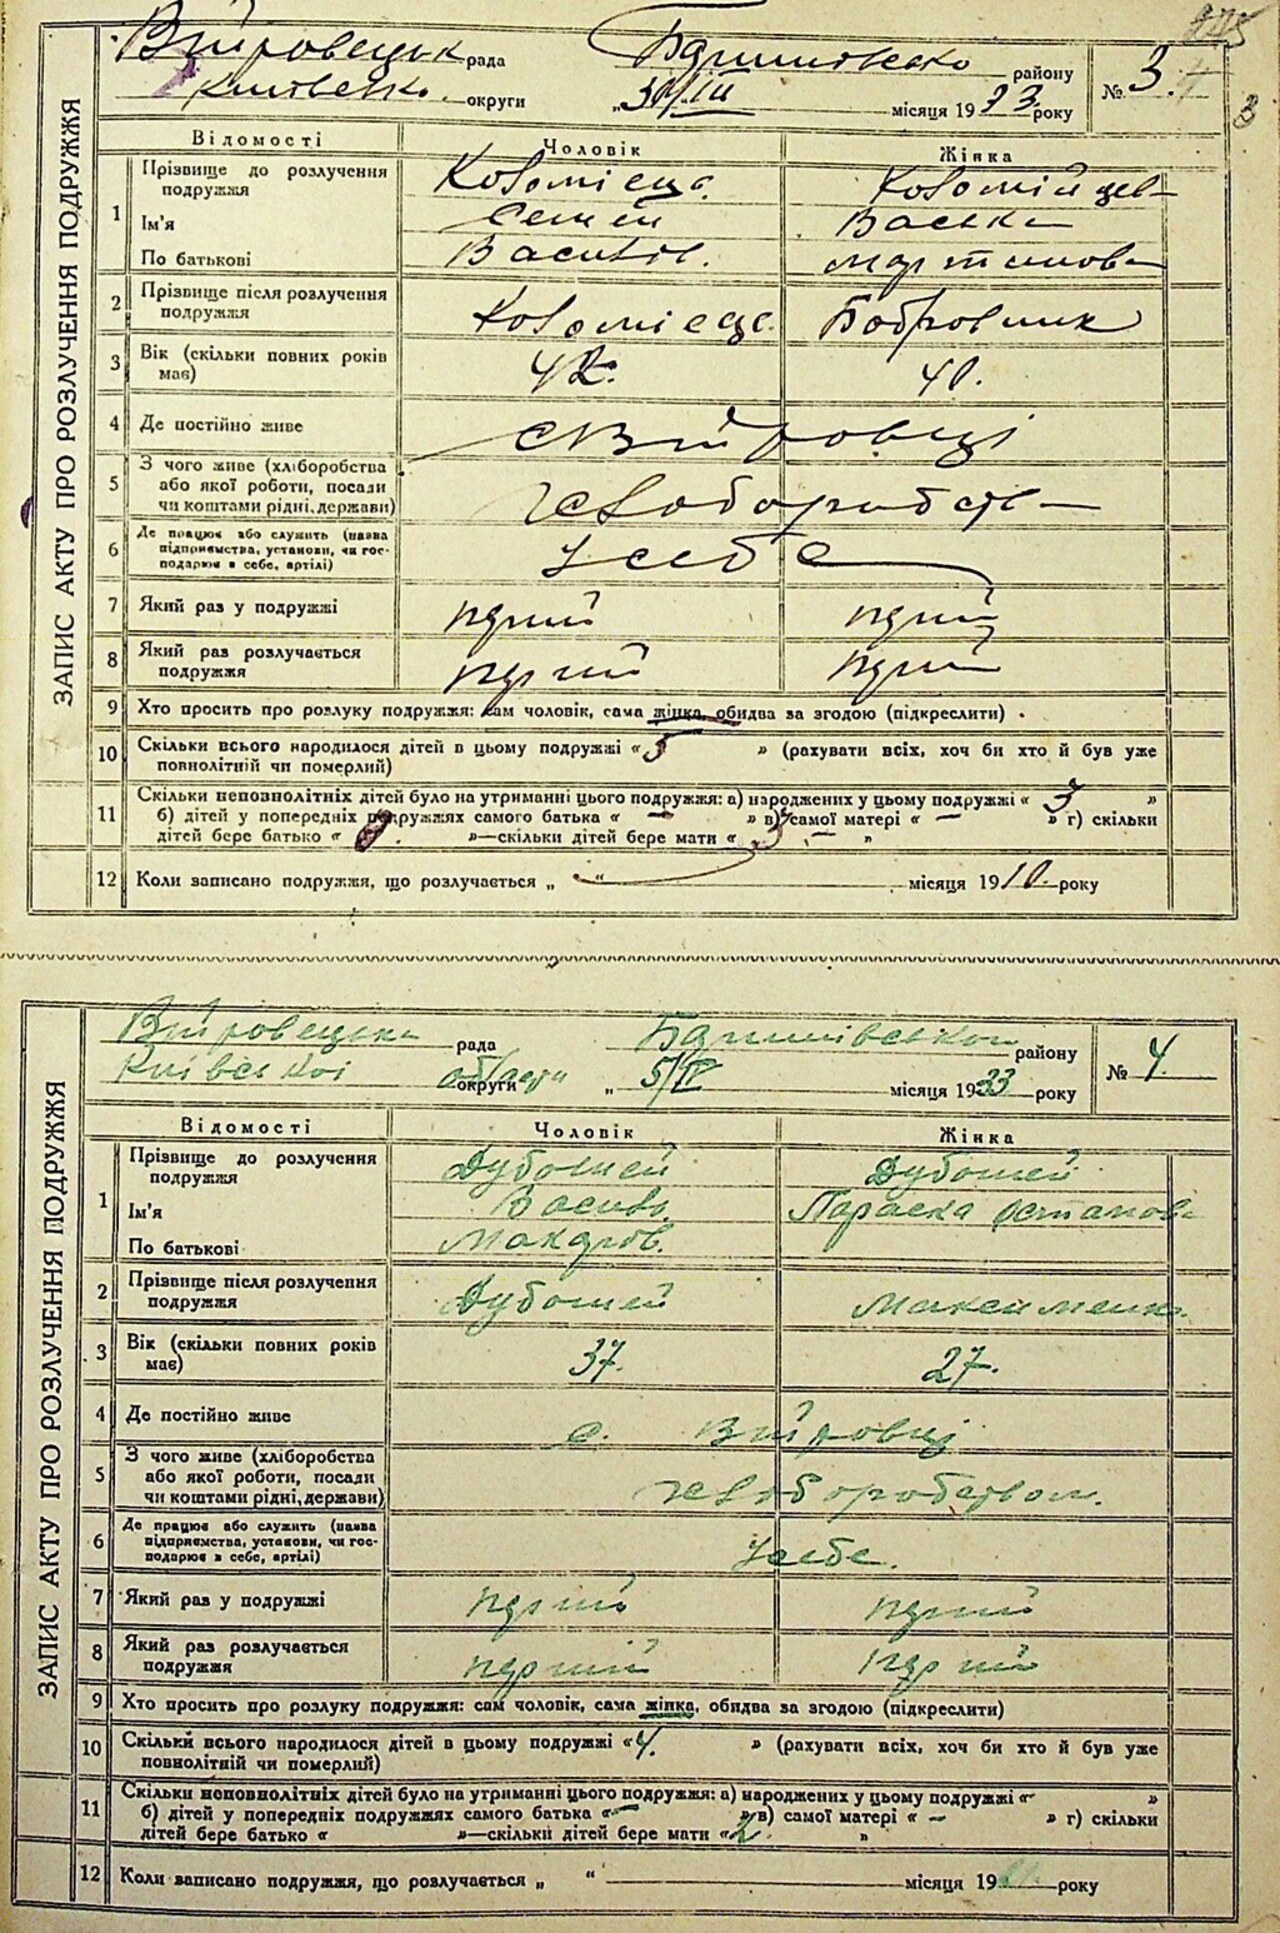 ЗАПИС АКТУ ПРО РОЗЛУЧЕННЯ ПОДРУЖЖЯ
рада района району № 3.
округи „30/III місяця 1933 року
Відомості Чоловік Жінка
1 Прізвище до розлучення Коломієць
подружжя
Ім'я Семен Васька
По батькові Васильов. Мартинова
2 Прізвище після розлучення Коломієць Бобровник
подружжя
3 Вік (скільки повних років 42. 40.
має)
4 Де постійно живе с Війтровці
5 З чого живе (хліборобства
або якої роботи, посади
чи коштами рідні, держави)
6 Де працює або служить (назва У себе
підприємства, установи, чи гос-
подарює в себе, артілі)
7 Який раз у подружжі перший перший
8 Який раз розлучається перший перший
подружжя
9 Хто просить про розлуку подружжя: сам чоловік, сама жінка, обидва за згодою (підкреслити)
10 Скільки всього народилося дітей в цьому подружжі « 5 » (рахувати всіх, хоч би хто й був уже
повнолітній чи померлий)
11 Скільки неповнолітніх дітей було на утриманні цього подружжя: а) народжених у цьому подружжі « 3 »
б) дітей у попередніх подружжях самого батька « — » в) самої матері « — » г) скільки
дітей бере батько « » —скільки дітей бере мати « »
12 Коли записано подружжя, що розлучається „ “ місяця 1910. року
ЗАПИС АКТУ ПРО РОЗЛУЧЕННЯ ПОДРУЖЖЯ
рада району № 4
Київської області округи „ 5/IV місяця 1933 року
Відомості Чоловік Жінка
1 Прізвище до розлучення Дубошей Дубошей
подружжя
Ім'я Василь Параска Остапов
По батькові Макаров.
2 Прізвище після розлучення Дубошей Максименко
подружжя
3 Вік (скільки повних років 37. 27.
має)
4 Де постійно живе с.
5 З чого живе (хліборобства Хліборобством.
або якої роботи, посади
чи коштами рідні, держави)
6 Де працює або служить (назва У себе.
підприємства, установи, чи гос-
подарює в себе, артілі)
7 Який раз у подружжі перший перший
8 Який раз розлучається перший перший
подружжя
9 Хто просить про розлуку подружжя: сам чоловік, сама жінка, обидва за згодою (підкреслити)
10 Скільки всього народилося дітей в цьому подружжі « 4. » (рахувати всіх, хоч би хто й був уже
повнолітній чи померлий)
11 Скільки неповнолітніх дітей було на утриманні цього подружжя: а) народжених у цьому подружжі « »
б) дітей у попередніх подружжях самого батька « — » в) самої матері « — » г) скільки
дітей бере батько « » —скільки дітей бере мати « 2. »
12 Коли записано подружжя, що розлучається „ “ місяця 19 року